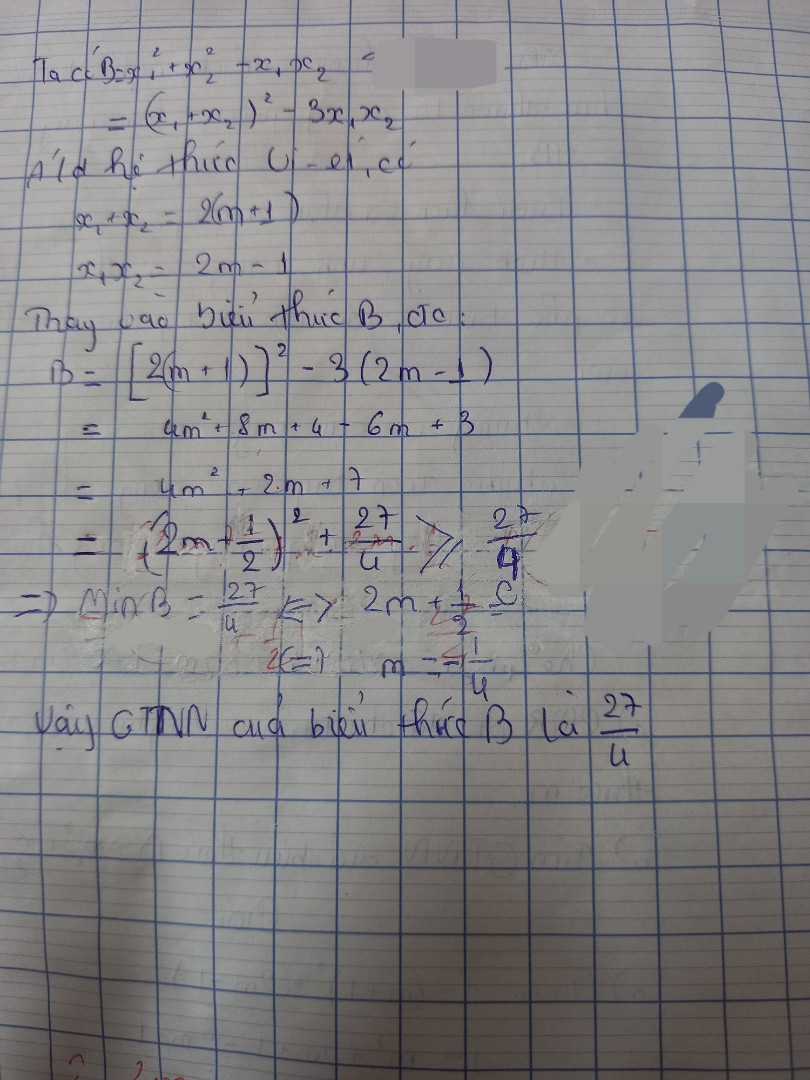 Ta có B = x₁² + x₂² - x₁x₂
= (x₁ + x₂)² - 3x₁x₂
hệ thức Vi-ét, có
x₁ + x₂ = 2(m+1)
x₁x₂ = 2m - 1
Thay vào biểu thức B, đc:
B = [2(m+1)]² - 3(2m-1)
= 4m² + 8m + 4 - 6m + 3
= 4m² + 2m + 7
= (2m + 1/2)² + 27/4 ⩾ 27/4
=> Min B = 27/4 <=> 2m + 1/2 = 0
(=) m = -1/4
Vậy GTNN của biểu thức B là 27/4